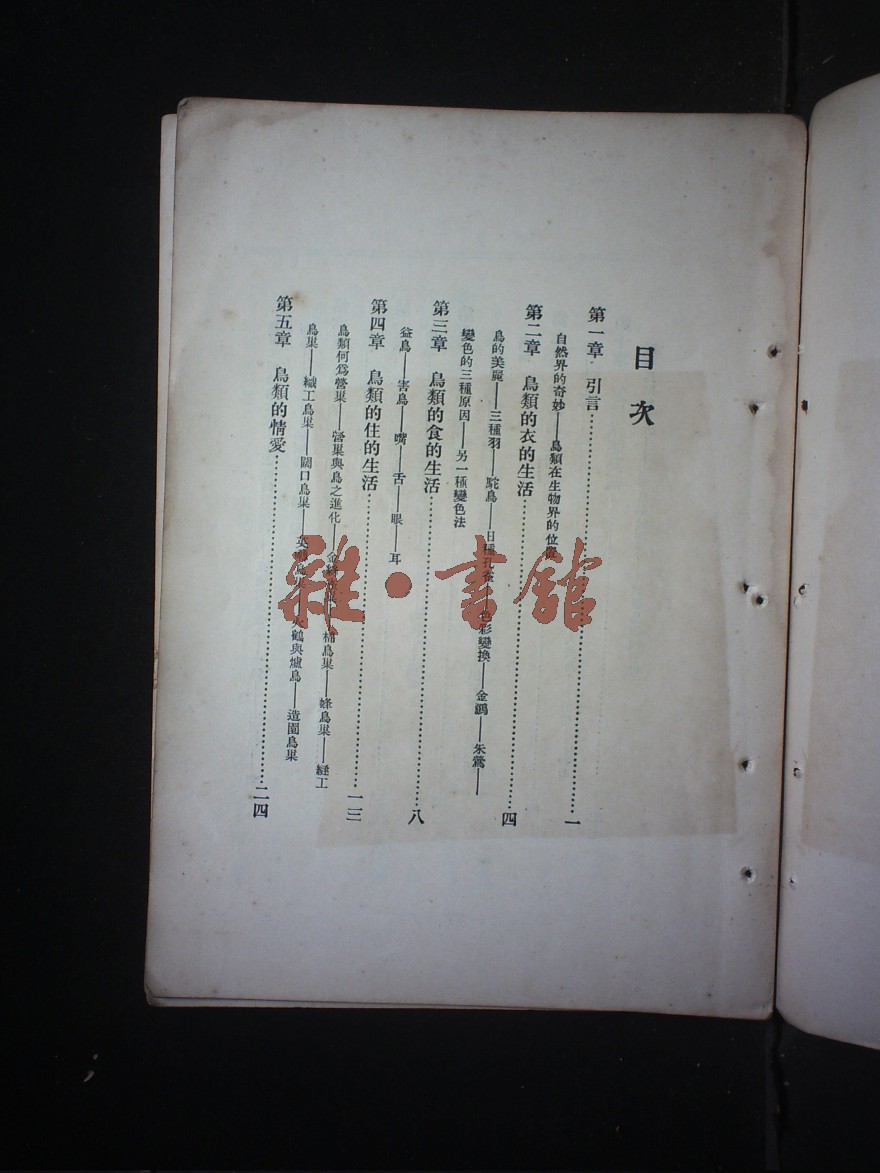 目次
第一章 引言……一
自然界的奇妙——鳥類在生物界的位置
第二章 鳥類的衣的生活……四
鳥的美麗——三種羽——駝鳥——日種孔雀——色彩變換——金鵎——朱鶯——
變色的三種原因——另一種變色法
第三章 鳥類的食的生活……八
益鳥——害鳥——嘴——舌——眼——耳
第四章 鳥類的住的生活……一三
鳥類何爲營巢——營巢與鳥之進化——金 鳥巢——縫工
鳥巢——織工鳥巢——闊口鳥巢—— 火鶴與爐鳥——造園鳥巢
第五章 鳥類的情愛……二四
雜·書館